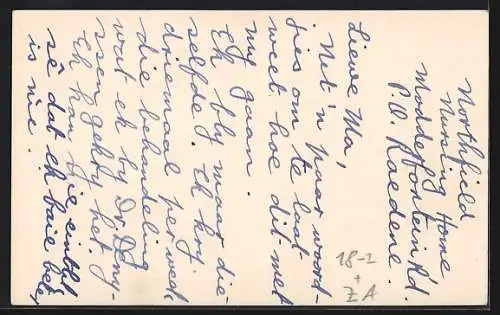 Northfield
Nursing Home
Modderfontein Rd.
P.O. Raedene.
Liewe Ma,
Net 'n paar woord-
jies om te laat
weet hoe dit met
my gaan.
Ek bly maar die-
selfde. Ek kry
driemaal per week
die behandeling
wat ek by Dr. De
ssen gekry het.
Ek kan nie eintlik
sê dat ek baie beter
is nie.
18-2
+
ZA